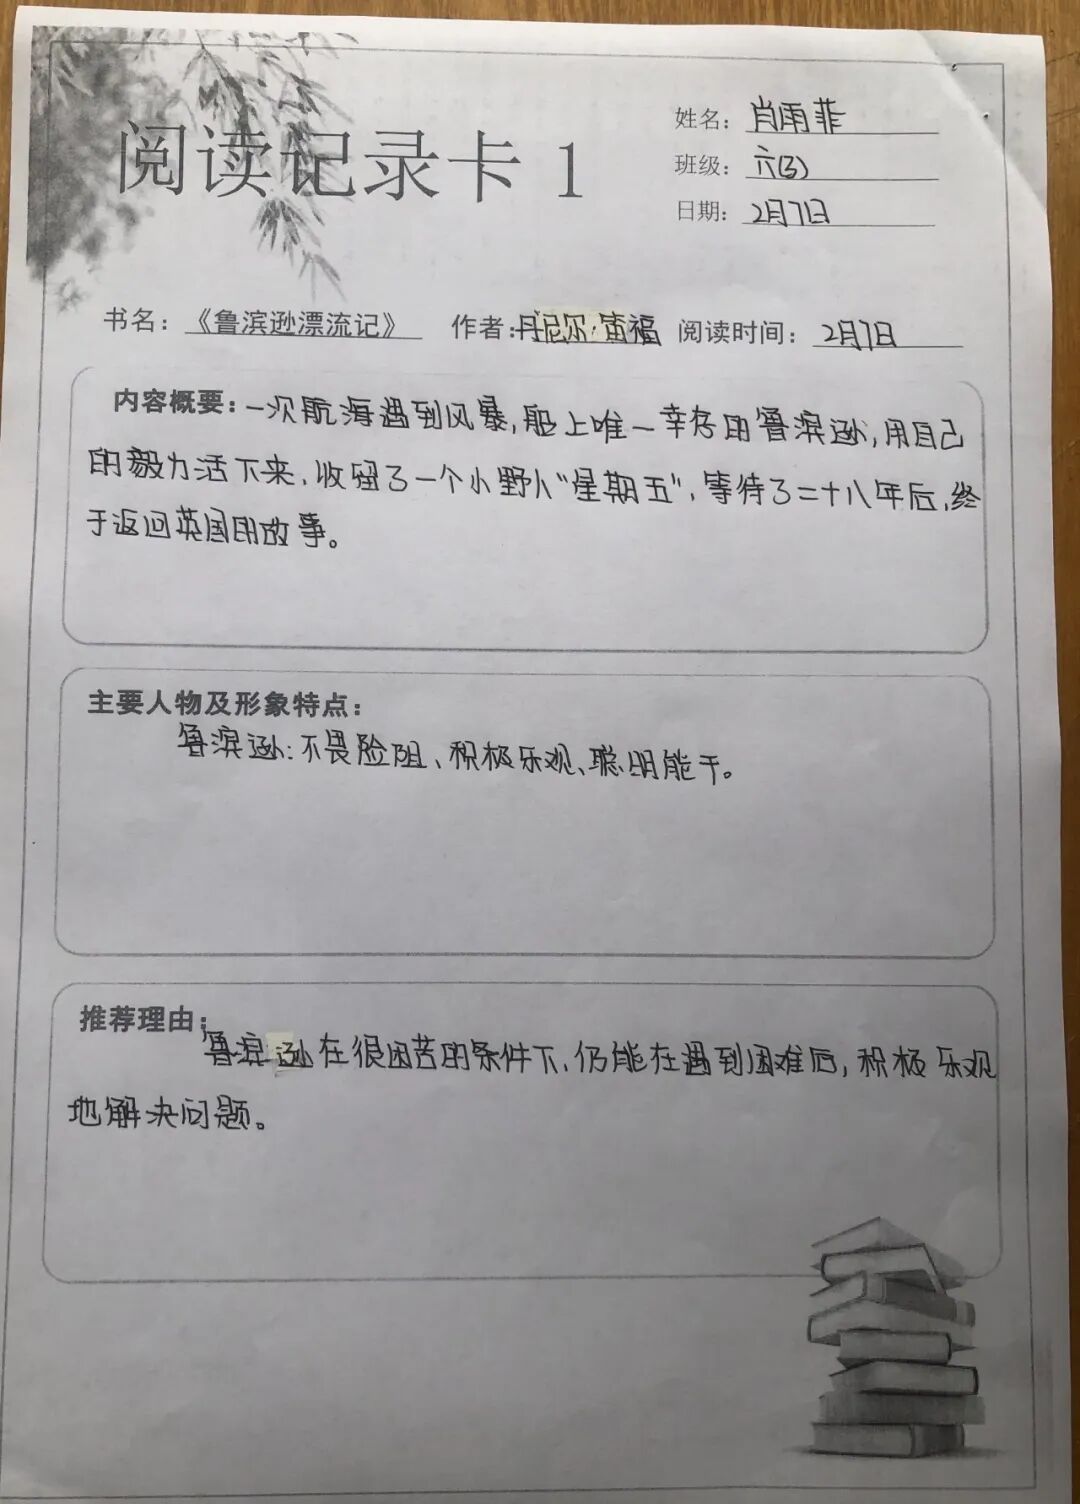 阅读记录卡 1
姓名：肖雨菲
班级：六(3)
日期：2月7日
书名：《鲁滨逊漂流记》 作者：丹尼尔·笛福 阅读时间：2月7日
内容概要：一次航海遇到风暴，船上唯一幸存的鲁滨逊，用自己
的毅力活下来，收留了一个小野人“星期五”，等待了二十八年后，终
于返回英国的故事。
主要人物及形象特点：
鲁滨逊：不畏险阻、积极乐观、聪明能干。
推荐理由：
鲁滨逊在很困苦的条件下，仍能在遇到困难后，积极乐观
地解决问题。